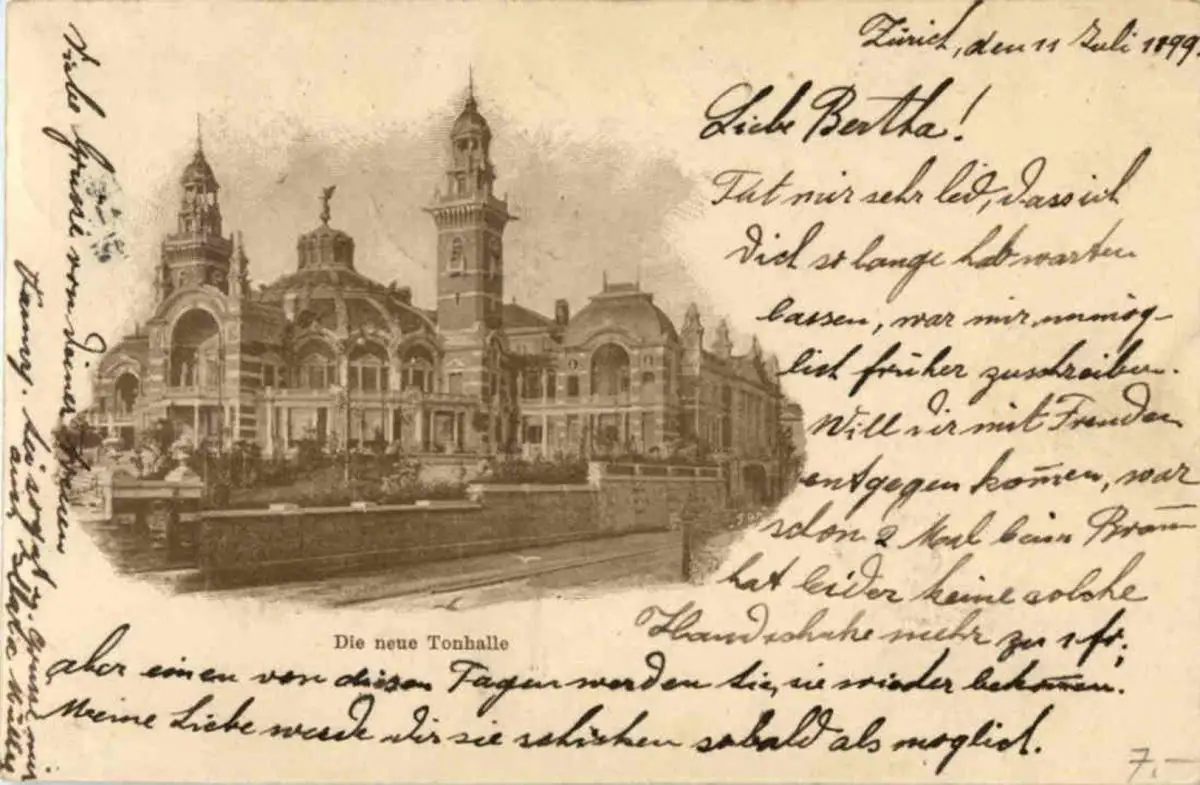 Zürich, den 11 Juli 1899.
Liebe Bertha!
Tut mir sehr leid, dass ich
Dich so lange hab warten
lassen, war mir unmög-
lich früher zu schreiben.
Will dir mit Freuden
entgegen kom̅en, war
schon 2 Mal beim Braun
hat leider keine solche
Handschuhe mehr zu 1 fr;
aber einen von diesen Tagen werden Sie, sie wieder bekom̅en.
Meine Liebe werde dir sie schicken sobald als moglich.
Die neue Tonhalle
Liebe Grüsse von deiner treuen
Fanny.
7.-